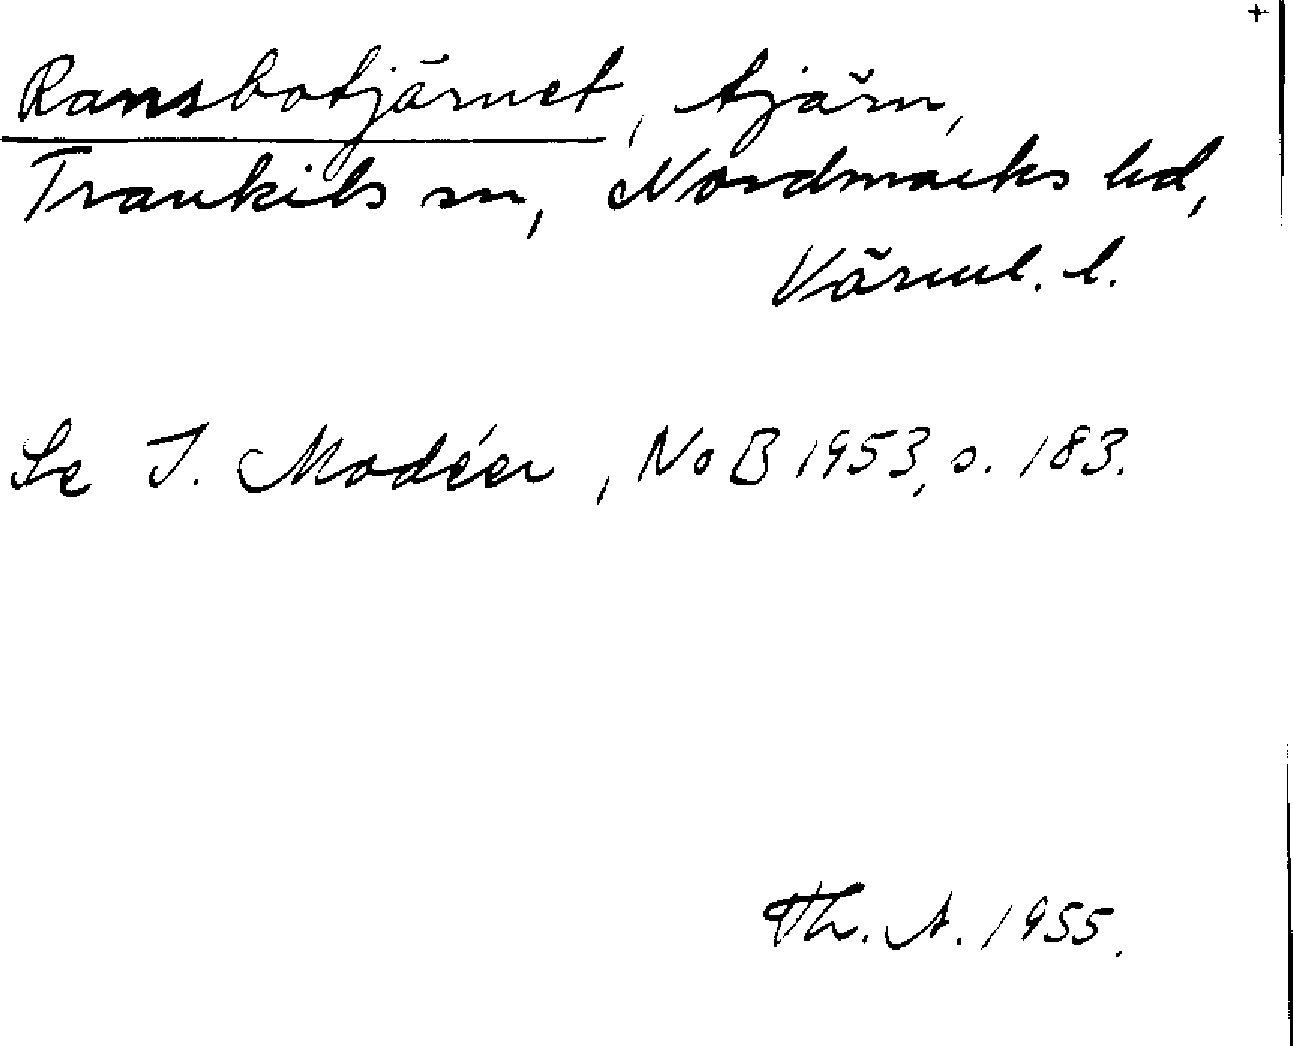 +
Ransbotjärnet, tjärn,
Trankils sn, Nordmarks hd,
Värml. l.
Se I. Modéer, NoB 1953, s. 183.
Th. A. 1955.